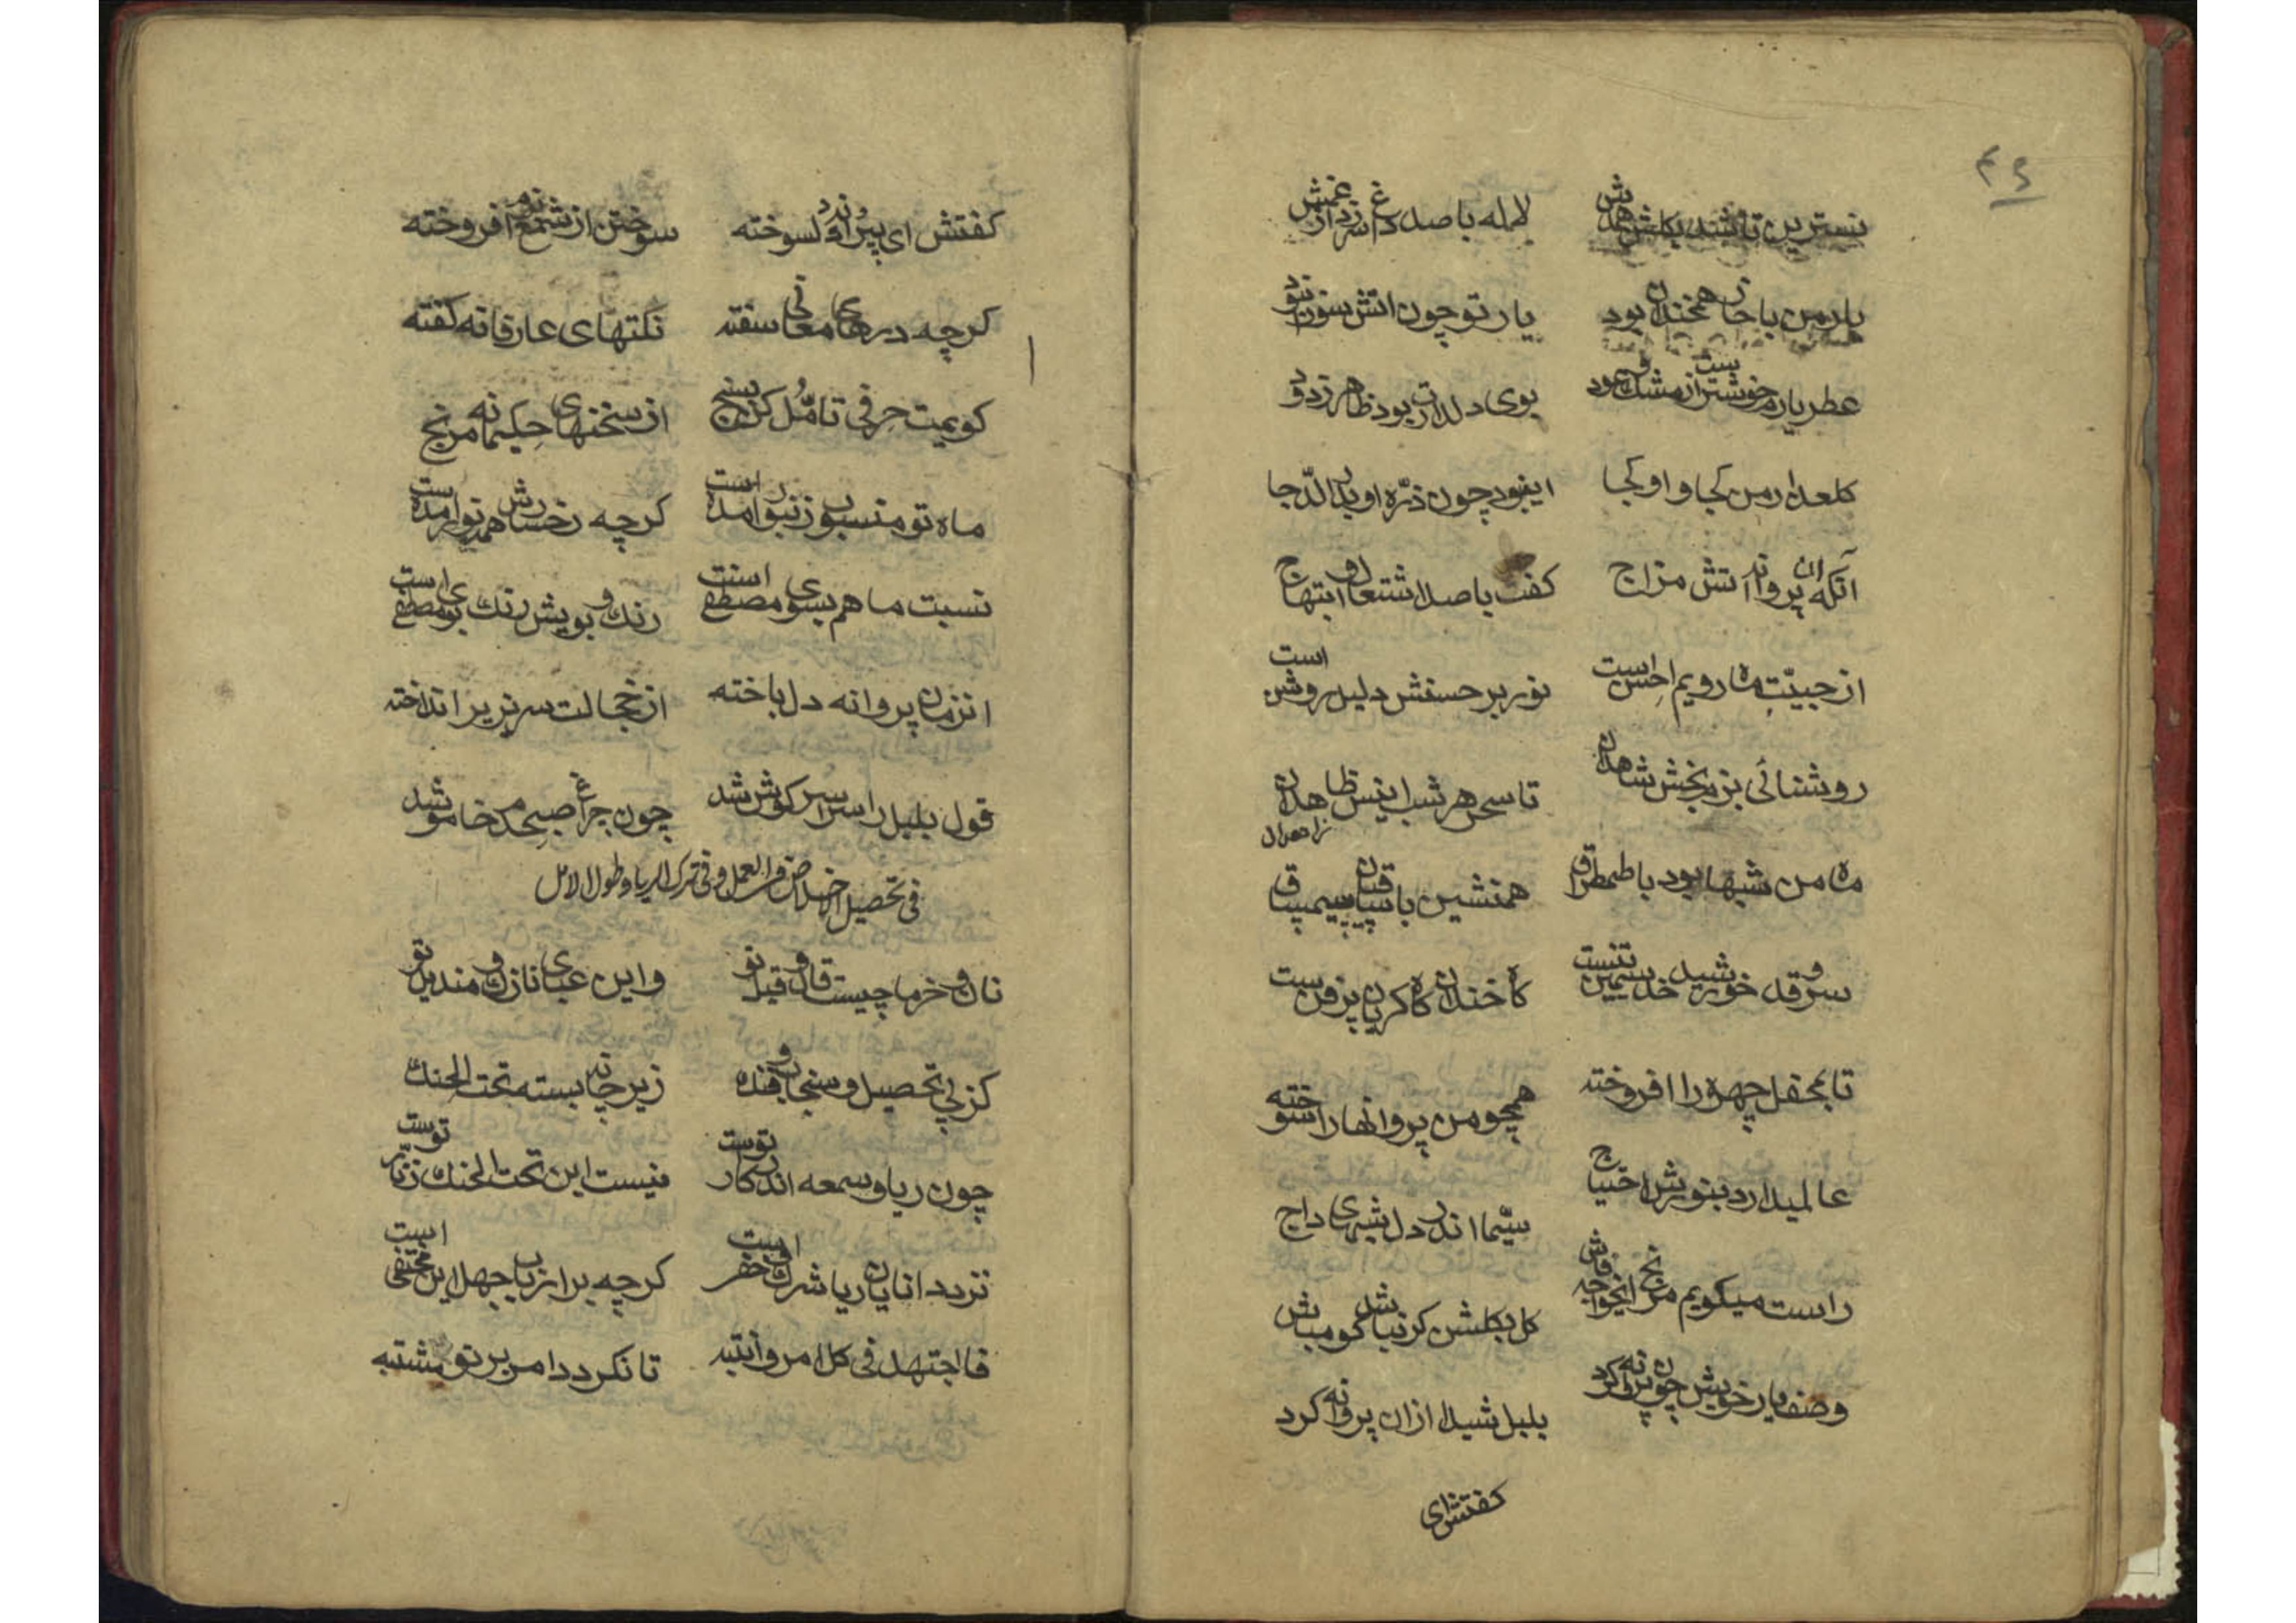 ۴۶
نسترین تا شد بکلشن همدمش لاله با صد داغ زد از غمش
یار من با خار هم خندان بود یار تو چون اتش سوزان بود
عطر یارم خوشتر از مشکست و عود بوی دلدارت بود ظاهر ز دود
کلعذار من کجا و او کجا این بود چون ذره او بدر الدجا
آنکه ان پروانه اتش مزاج کفت با صد اشتعال و ابتهاج
از جبینت ماه رویم احسن است نور بر حسنش دلیل روشن است
روشنائی بزم بخش شاهدان تا سحر هر شب انیس زاهدان
ظاهران
ماه من شبها بود با طمطراق همنشین با ساقیان سیم ساق
سرو قد و خورشید خد سیمین تنست کاه خندان کاه کریان پر فنست
تا بمحفل چهره را افروخته همچو من پروانها را سوخته
عالمی دارد بنورش احتیاج سیما اندر دل شبهای داج
راست میکویم مرنج ای خواجه فاش کل بکلشن کر نباشد کو مباش
وصف یار خویش چون پروانه کرد بلبل شیدا از ان پروانه کرد
کفتش ای
کفتش ای پروانه دلسوخته سوختن از شمع نور افروخته
کرچه درهای معانی سفته نکتهای عارفانه کفته
کویمت حرفی تامل کن بسنج از سخنهای حکیمانه مرنج
ماه تو منسوب زنبور امده است کرچه رخسارش همه نور امدست
نسبت ما هم بسوی مصطفی است رنک و بویش رنک و بوی مصطفی است
انزمان پروانه دل باخته از خجالت سر بزیر انداخته
قول بلبل را سراسر کوش شد چون چراغ صبحدم خاموش شد
فی تحصیل الاخلاص من العمل و فی ترک الریا و طول الامل
نان و خرما چیست قال و قیل تو و این عبای نازک و مندیل تو
کز پی تحصیل و سنجاب و فنک زیر چانه بسته تحت الحنک
چون ریا و سمعه اندر کار توست نیست این تحت الحنک زنار توست
نزد دانایان ریا شرک خفی است کرچه بر ارباب جهل این مختفی است
فاجتهد فی کل امر وانتبه تا نکردد امر بر تو مشتبه